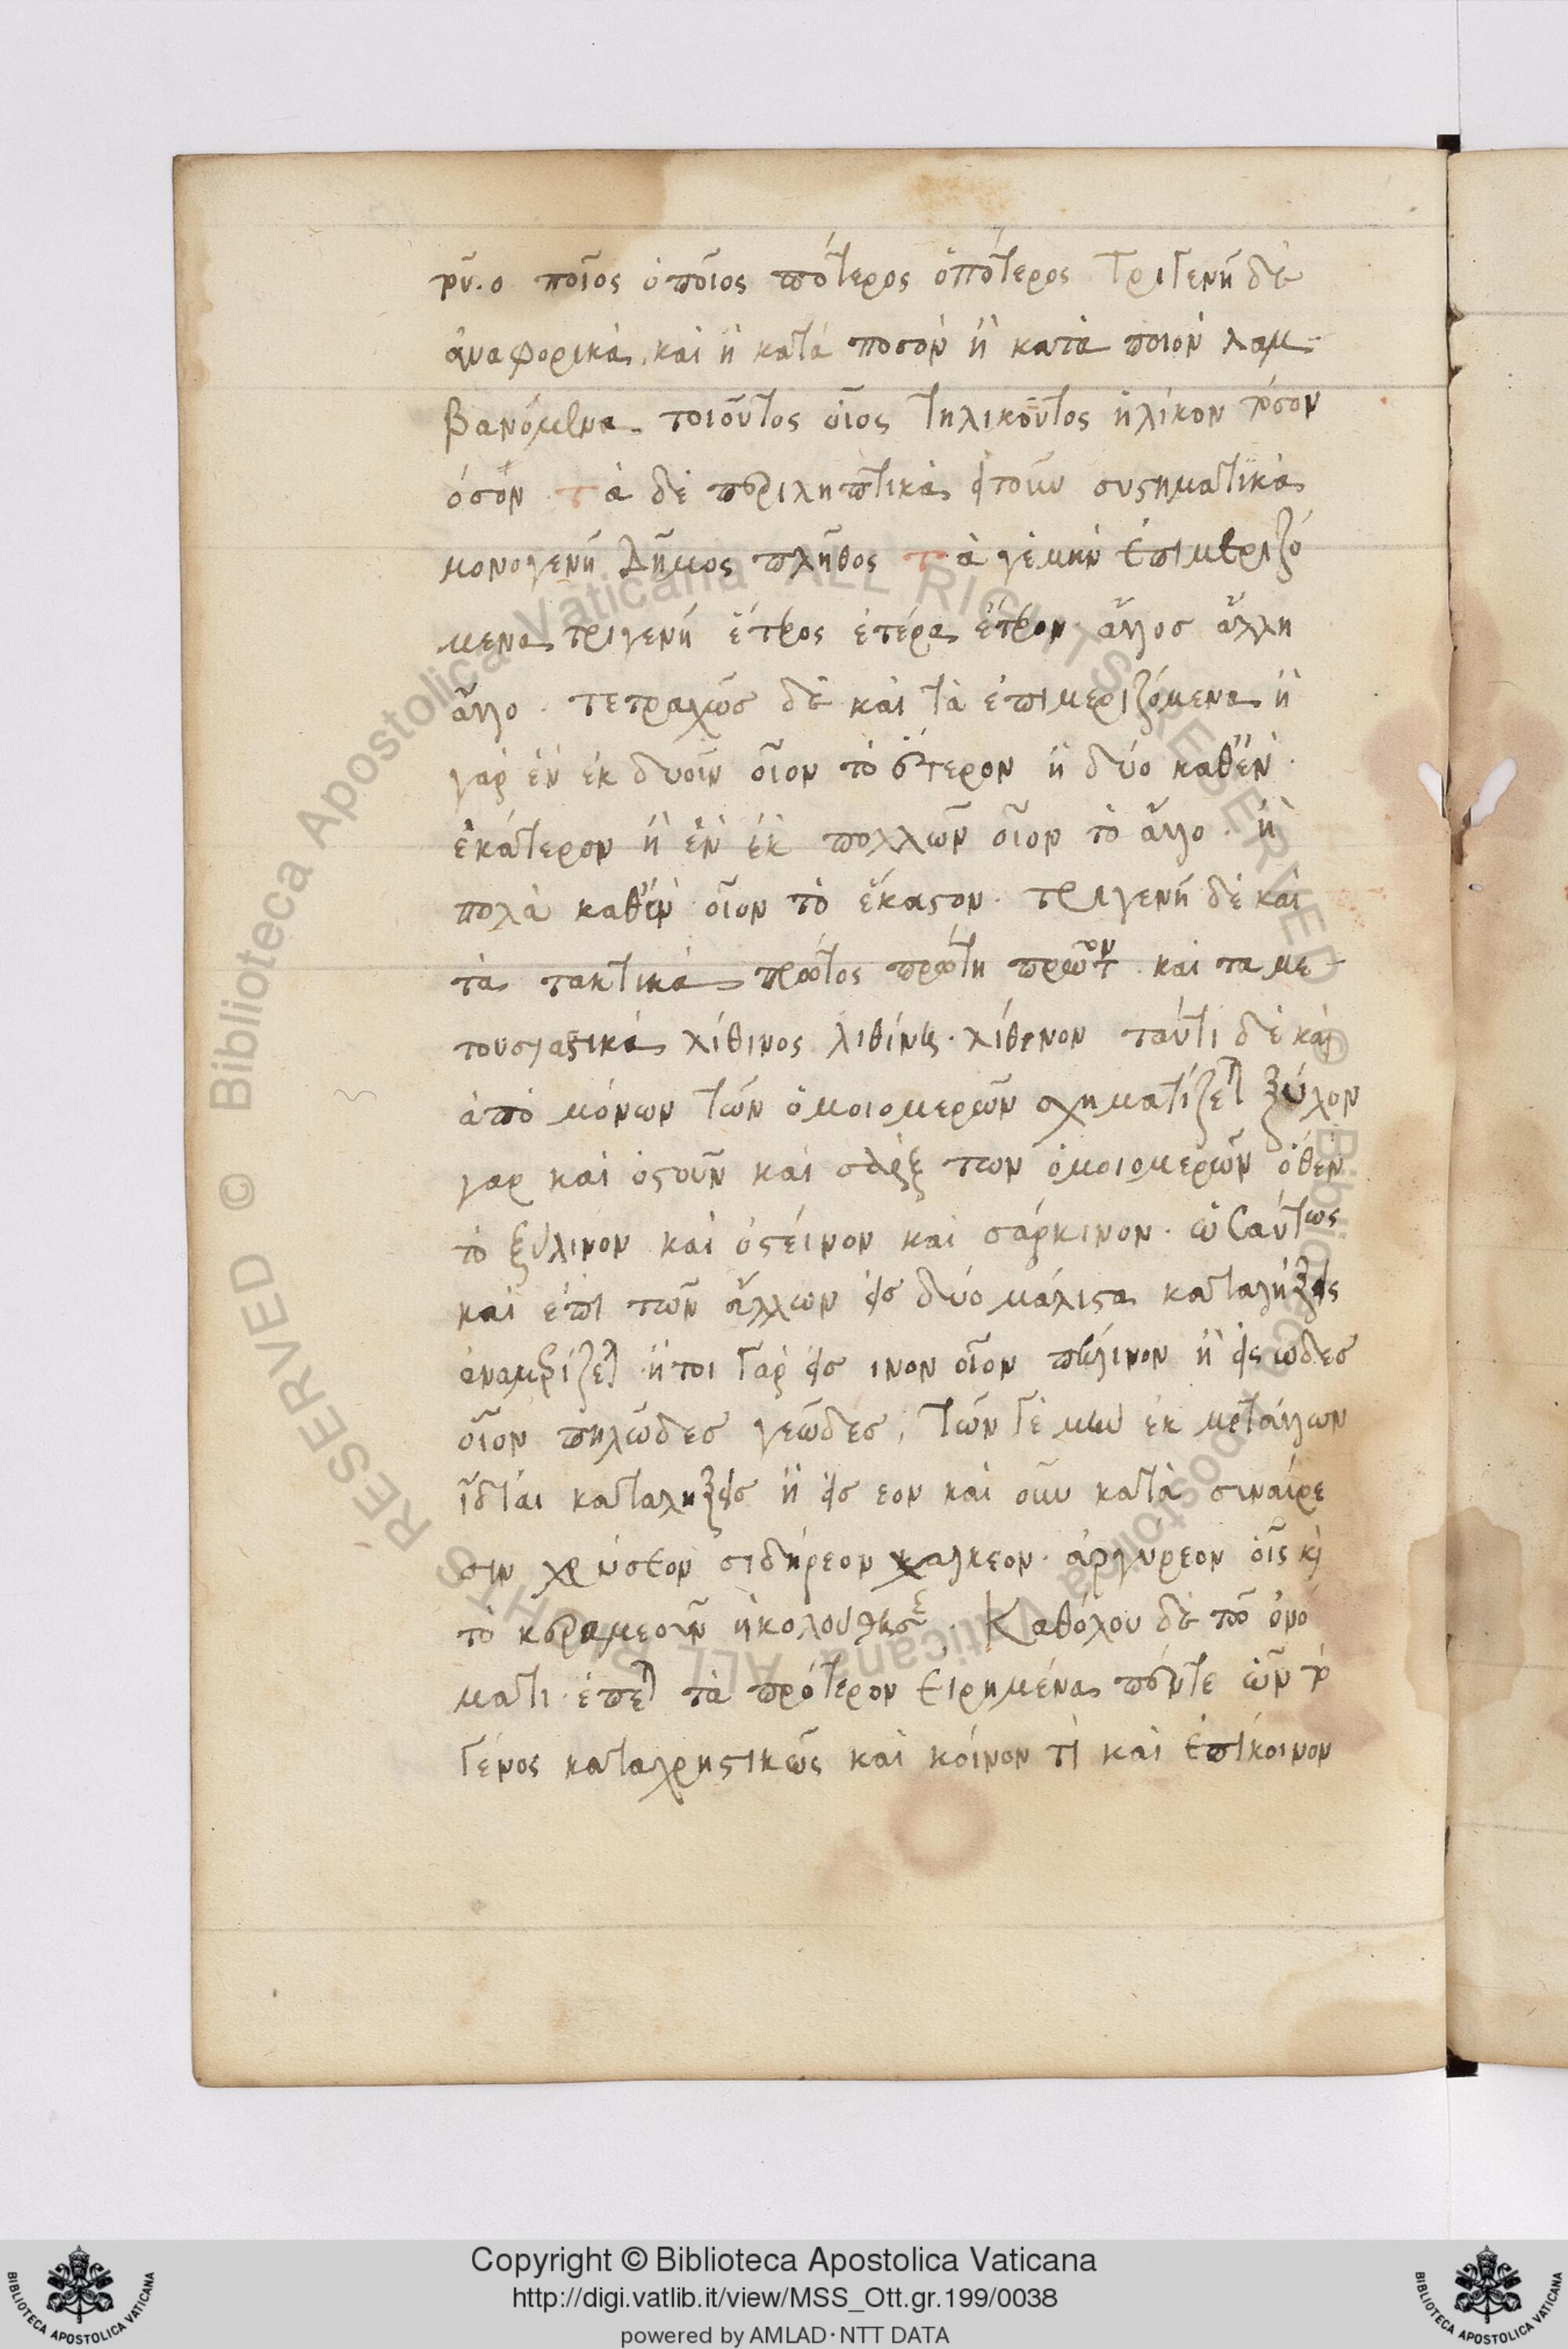 ρῦ. ο ποῖος ὁποῖος πότερος ὁπότερος τριγενῆ δὲ
ἀναφορικὰ καὶ ἢ κατὰ ποσὸν ἢ κατὰ ποιὸν λαμ-
βανόμενα. τοιοῦτος οἷος τηλικοῦτος ἡλίκον τόσον
ὅσον τὰ δὲ περιληπτικὰ εἴτουν συστηματικὰ
μονογενῆ δῆμος πλῆθος τὰ γὲ μὴν ἐπιμεριζό
μενα τριγενῆ ἕτερος ἑτέρα ἕτερον ἄλλος ἄλλη
ἄλλο. τετραχῶς δὲ καὶ τὰ ἐπιμεριζόμενα ἢ
γὰρ ἓν ἐκ δυοῖν οἷον τὸ ἕτερον ἢ δύο καθ' ἓν
ἑκάτερον ἢ ἓν ἐκ πολλῶν οἷον τὸ ἄλλο. ἢ
πολὰ καθ' ἓν οἷον τὸ ἕκαστον. τριγενῆ δὲ καὶ
τὰ τακτικὰ πρῶτος πρώτη πρῶτον. καὶ τα με-
τουσιαστικὰ λίθινος λιθίνη. λίθινον ταύτι δὲ καὶ
ἀπὸ μόνων τῶν ὁμοιομερῶν σχηματίζεται ξύλον
γαρ καὶ ὀστοῦν καὶ σάρξ των ὁμοιομερῶν ὅθεν
τὸ ξύλινον καὶ ὀστέινον καὶ σάρκινον. ὡσαύτως
καὶ ἐπὶ τῶν ἄλλων εἰς δύο μάλιστα καταλήξεις
ἀναμερίζεται ἤτοι γὰρ εἰς ινον οἷον πήλινον ἢ εἰς ωδες
οἷον πηλῶδες γεῶδες, τῶν γὲ μὴν ἐκ μετάλλων
ἴδιαι καταλήξεις ἢ εἰς εον καὶ ουν κατὰ σιναίρε
σιν χρύσεον σιδήρεον χαλκεον. ἀργύρεον οἷς κ
τὸ κεραμεοῦν ἠκολούθησε. Καθόλου δὲ τῶ ὀνό
ματι ἕπεται τὰ πρότερον εἰρημένα πέντε ὧν τὸ
γένος καταχρηστικῶς καὶ κοίνον τί καὶ ἐπίκοινον
Copyright © Biblioteca Apostolica Vaticana
http://digi.vatlib.it/view/MSS_Ott.gr.199/0038
powered by AMLAD·NTT DATA